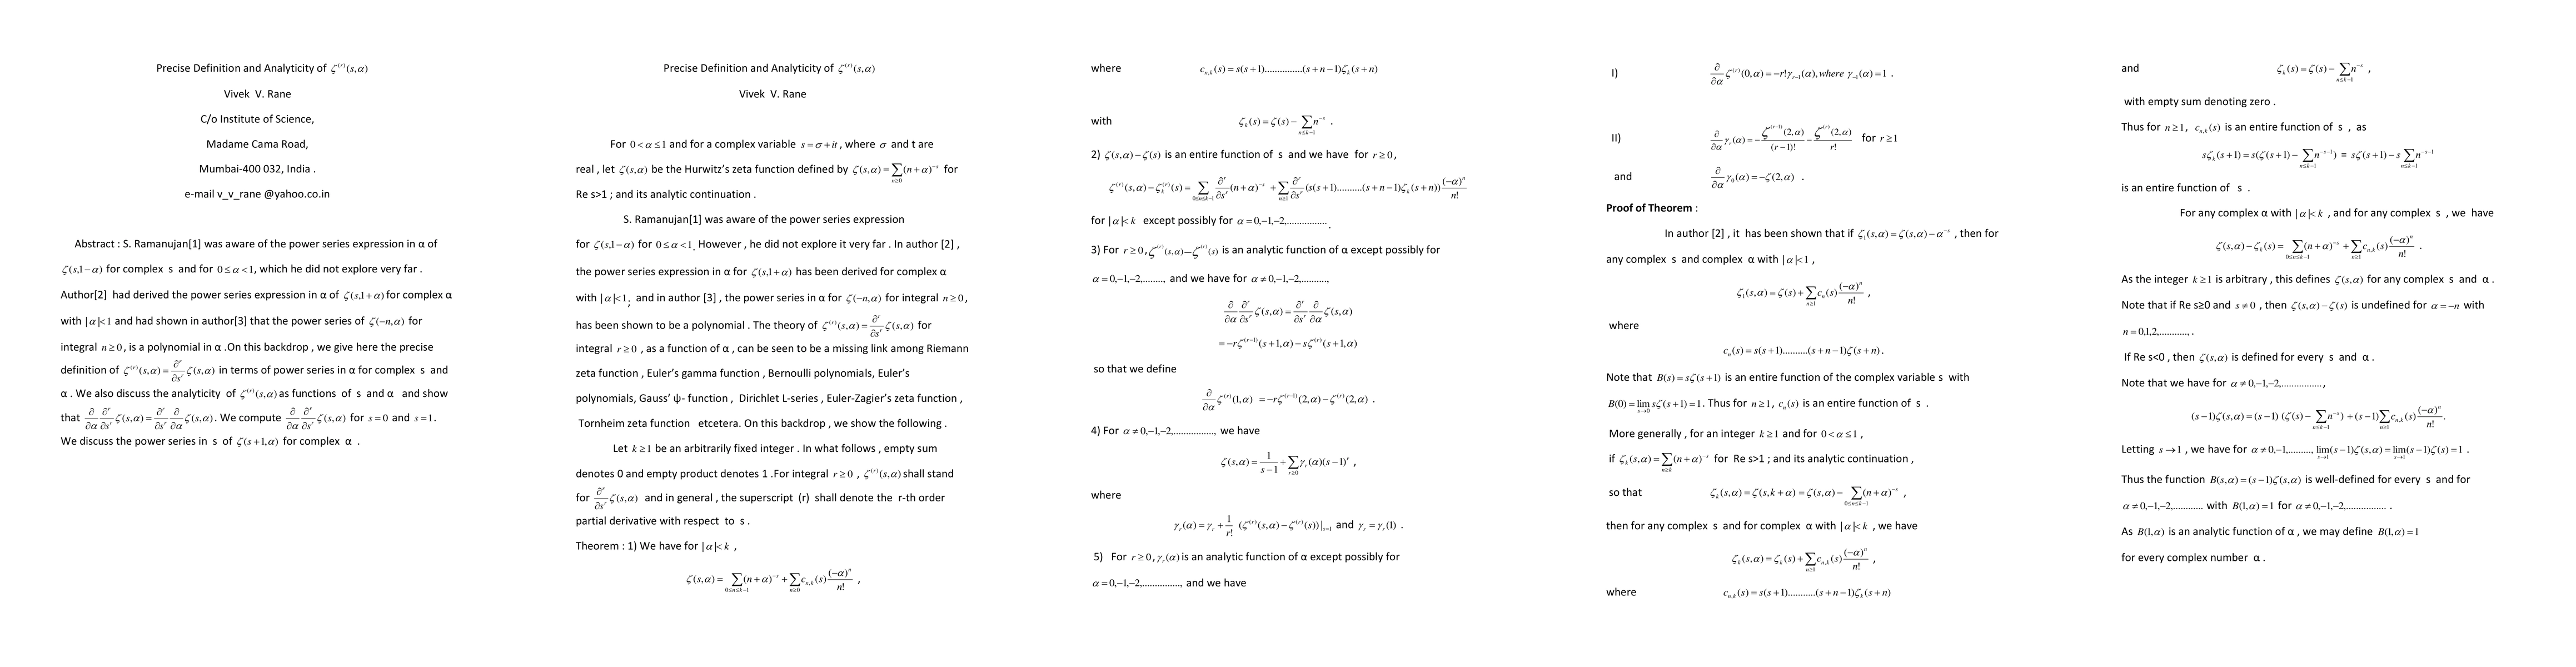 Precise Definition and Analyticity of ζ^{(r)}(s,α)
Vivek V. Rane
C/o Institute of Science,
Madame Cama Road,
Mumbai-400 032, India .
e-mail v_v_rane @yahoo.co.in
Abstract : S. Ramanujan[1] was aware of the power series expression in α of
ζ(s,1−α) for complex s and for 0≤α<1, which he did not explore very far .
Author[2] had derived the power series expression in α of ζ(s,1+α) for complex α
with |α|<1 and had shown in author[3] that the power series of ζ(−n,α) for
integral n≥0, is a polynomial in α .On this backdrop , we give here the precise
definition of ζ^{(r)}(s,α)=∂^r/∂s^r ζ(s,α) in terms of power series in α for complex s and
α . We also discuss the analyticity of ζ^{(r)}(s,α) as functions of s and α and show
that ∂/∂α ∂^r/∂s^r ζ(s,α)=∂^r/∂s^r ∂/∂α ζ(s,α). We compute ∂/∂α ∂^r/∂s^r ζ(s,α) for s=0 and s=1.
We discuss the power series in s of ζ(s+1,α) for complex α .
Precise Definition and Analyticity of ζ^{(r)}(s,α)
Vivek V. Rane
For 0<α≤1 and for a complex variable s=σ+it, where σ and t are
real , let ζ(s,α) be the Hurwitz’s zeta function defined by ζ(s,α)=∑_{n≥0}(n+α)^{-s} for
Re s>1 ; and its analytic continuation .
S. Ramanujan[1] was aware of the power series expression
for ζ(s,1−α) for 0≤α<1. However , he did not explore it very far . In author [2] ,
the power series expression in α for ζ(s,1+α) has been derived for complex α
with |α|<1; and in author [3] , the power series in α for ζ(−n,α) for integral n≥0,
has been shown to be a polynomial . The theory of ζ^{(r)}(s,α)=∂^r/∂s^r ζ(s,α) for
integral r≥0 , as a function of α , can be seen to be a missing link among Riemann
zeta function , Euler’s gamma function , Bernoulli polynomials, Euler’s
polynomials, Gauss’ ψ- function , Dirichlet L-series , Euler-Zagier’s zeta function ,
Tornheim zeta function etcetera. On this backdrop , we show the following .
Let k≥1 be an arbitrarily fixed integer . In what follows , empty sum
denotes 0 and empty product denotes 1 .For integral r≥0 , ζ^{(r)}(s,α) shall stand
for ∂^r/∂s^r ζ(s,α) and in general , the superscript (r) shall denote the r-th order
partial derivative with respect to s .
Theorem : 1) We have for |α|<k ,
ζ(s,α)=∑_{0≤n≤k−1}(n+α)^{-s}+∑_{n≥0}c_{n,k}(s)(−α)^n/n! ,
where c_{n,k}(s)=s(s+1)...............(s+n−1)ζ_k(s+n)
with ζ_k(s)=ζ(s)−∑_{n≤k−1}n^{-s} .
2) ζ(s,α)−ζ(s) is an entire function of s and we have for r≥0,
ζ^{(r)}(s,α)−ζ_k^{(r)}(s)=∑_{0≤n≤k−1}∂^r/∂s^r(n+α)^{-s}+∑_{n≥1}∂^r/∂s^r(s(s+1)..........(s+n−1)ζ_k(s+n))(−α)^n/n!
for |α|<k except possibly for α=0,−1,−2,................
3) For r≥0,ζ^{(r)}(s,α)−ζ^{(r)}(s) is an analytic function of α except possibly for
α=0,−1,−2,........, and we have for α≠0,−1,−2,.........,
∂/∂α ∂^r/∂s^r ζ(s,α)=∂^r/∂s^r ∂/∂α ζ(s,α)
=−rζ^{(r−1)}(s+1,α)−sζ^{(r)}(s+1,α)
so that we define
∂/∂α ζ^{(r)}(1,α) =−rζ^{(r−1)}(2,α)−ζ^{(r)}(2,α) .
4) For α≠0,−1,−2,................, we have
ζ(s,α)=1/(s−1)+∑_{r≥0}γ_r(α)(s−1)^r ,
where
γ_r(α)=γ_r+1/r! (ζ^{(r)}(s,α)−ζ^{(r)}(s))|_{s=1} and γ_r=γ_r(1) .
5) For r≥0,γ_r(α) is an analytic function of α except possibly for
α=0,−1,−2,..............., and we have
I) ∂/∂α ζ^{(r)}(0,α)=−r!γ_{r−1}(α), where γ_{−1}(α)=1 .
II) ∂/∂α γ_r(α)=−ζ^{(r−1)}(2,α)/(r−1)!−ζ^{(r)}(2,α)/r! for r≥1
and ∂/∂α γ_0(α)=−ζ(2,α) .
Proof of Theorem :
In author [2] , it has been shown that if ζ_1(s,α)=ζ(s,α)−α^{-s} , then for
any complex s and complex α with |α|<1 ,
ζ_1(s,α)=ζ(s)+∑_{n≥1}c_n(s)(−α)^n/n! ,
where
c_n(s)=s(s+1)..........(s+n−1)ζ(s+n).
Note that B(s)=sζ(s+1) is an entire function of the complex variable s with
B(0)=lim_{s→0}sζ(s+1)=1. Thus for n≥1, c_n(s) is an entire function of s .
More generally , for an integer k≥1 and for 0<α≤1 ,
if ζ_k(s,α)=∑_{n≥k}(n+α)^{-s} for Re s>1 ; and its analytic continuation ,
so that ζ_k(s,α)=ζ(s,k+α)=ζ(s,α)−∑_{0≤n≤k−1}(n+α)^{-s} ,
then for any complex s and for complex α with |α|<k , we have
ζ_k(s,α)=ζ_k(s)+∑_{n≥1}c_{n,k}(s)(−α)^n/n! ,
where c_{n,k}(s)=s(s+1)...........(s+n−1)ζ_k(s+n)
and ζ_k(s)=ζ(s)−∑_{n≤k−1}n^{-s} ,
with empty sum denoting zero .
Thus for n≥1, c_{n,k}(s) is an entire function of s , as
sζ_k(s+1)=s(ζ(s+1)−∑_{n≤k−1}n^{-s−1}) = sζ(s+1)−s∑_{n≤k−1}n^{-s−1}
is an entire function of s .
For any complex α with |α|<k , and for any complex s , we have
ζ(s,α)−ζ_k(s)=∑_{0≤n≤k−1}(n+α)^{-s}+∑_{n≥1}c_{n,k}(s)(−α)^n/n! .
As the integer k≥1 is arbitrary , this defines ζ(s,α) for any complex s and α .
Note that if Re s≥0 and s≠0 , then ζ(s,α)−ζ(s) is undefined for α=−n with
n=0,1,2,..........., .
If Re s<0 , then ζ(s,α) is defined for every s and α .
Note that we have for α≠0,−1,−2,................,
(s−1)ζ(s,α)=(s−1) (ζ(s)−∑_{n≤k−1}n^{-s})+(s−1)∑_{n≥1}c_{n,k}(s)(−α)^n/n!.
Letting s→1 , we have for α≠0,−1,........., lim_{s→1}(s−1)ζ(s,α)=lim_{s→1}(s−1)ζ(s)=1 .
Thus the function B(s,α)=(s−1)ζ(s,α) is well-defined for every s and for
α≠0,−1,−2,........... with B(1,α)=1 for α≠0,−1,−2,................ .
As B(1,α) is an analytic function of α , we may define B(1,α)=1
for every complex number α .